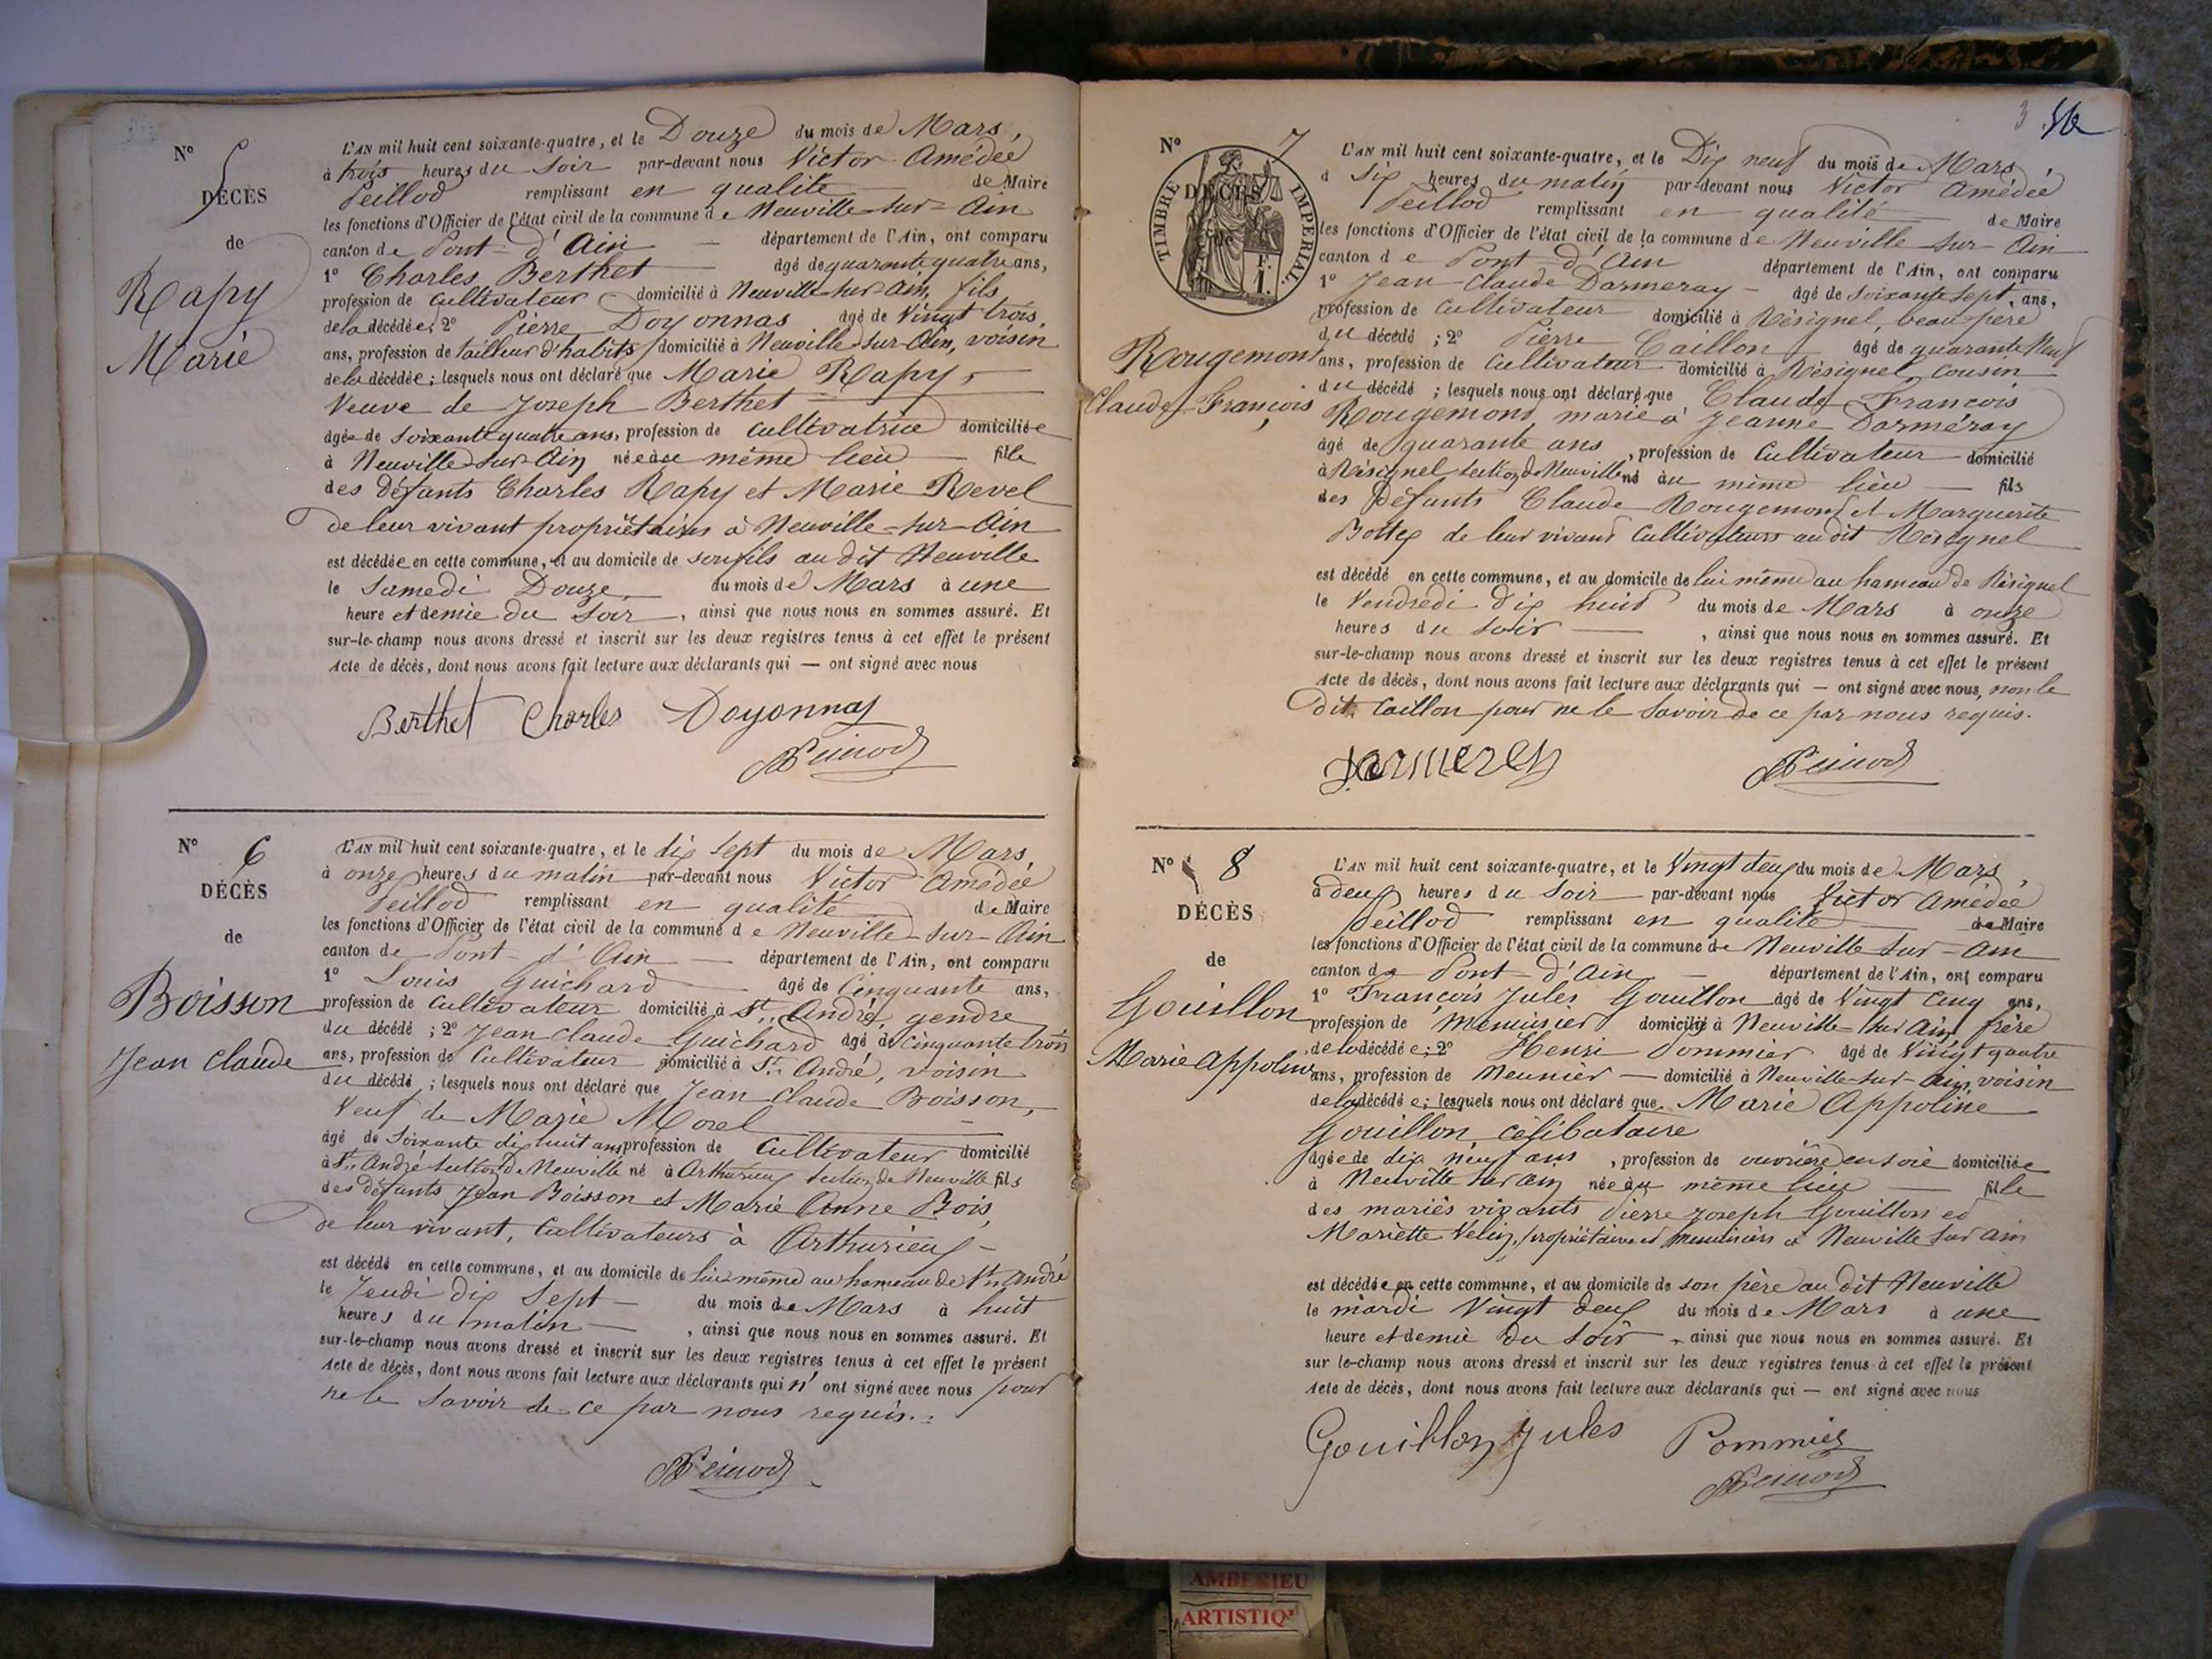 N° 5
DÉCÈS
de
Rapy
Marie
L'AN mil huit cent soixante-quatre, et le Douze du mois de Mars,
à trois heures du soir par-devant nous Victor Amédée
Peillod remplissant en qualité de Maire
les fonctions d'Officier de l'état civil de la commune de Neuville-sur-Ain
canton de Pont-d'Ain département de l'Ain, ont comparu
1° Charles Berthet âgé de quarante quatre ans,
profession de Cultivateur domicilié à Neuville-sur-Ain, fils
de la décédée; 2° Pierre Doyonnas âgé de Vingt trois,
ans, profession de tailleur d'habits, domicilié à Neuville-sur-Ain, voisin
de la décédée; lesquels nous ont déclaré que Marie Rapy,
Veuve de Joseph Berthet
âgée de soixante quatre ans, profession de Cultivatrice domiciliée
à Neuville-sur-Ain née au même lieu fille
des défunts Charles Rapy et Marie Revel
de leur vivant propriétaires à Neuville-sur-Ain
est décédée en cette commune, et au domicile de son fils au dit Neuville
le Samedi Douze, du mois de Mars à une
heure et demie du Soir, ainsi que nous nous en sommes assuré. Et
sur-le-champ nous avons dressé et inscrit sur les deux registres tenus à cet effet le présent
Acte de décès, dont nous avons fait lecture aux déclarants qui — ont signé avec nous
Berthet Charles Doyonnas
N° 6
DÉCÈS
de
Boisson
Jean Claude
L'AN mil huit cent soixante-quatre, et le dix sept du mois de Mars,
à onze heures du matin par-devant nous Victor Amédée
Peillod remplissant en qualité de Maire
les fonctions d'Officier de l'état civil de la commune de Neuville-sur-Ain
canton de Pont-d'Ain département de l'Ain, ont comparu
1° Louis Guichard âgé de Cinquante ans,
profession de Cultivateur domicilié à St. André, gendre
du décédé; 2° Jean Claude Guichard âgé de Cinquante trois
ans, profession de Cultivateur domicilié à St. André, voisin
du décédé; lesquels nous ont déclaré que Jean Claude Boisson,
Veuf de Marie Morel
âgé de Soixante dix huit ans profession de Cultivateur domicilié
à St. André section de Neuville né à Arthurieux section de Neuville fils
des défunts Jean Boisson et Marie Anne Bois,
de leur vivant, Cultivateurs à Arthurieux
est décédé en cette commune, et au domicile de lui même au hameau de St. André
le Jeudi dix sept du mois de Mars à huit
heures du matin, ainsi que nous nous en sommes assuré. Et
sur-le-champ nous avons dressé et inscrit sur les deux registres tenus à cet effet le présent
Acte de décès, dont nous avons fait lecture aux déclarants qui n'ont signé avec nous pour
ne le savoir de ce par nous requis.
3
N° 7
TIMBRE IMPÉRIAL
DÉCÈS
de
F.
1.
Rougemont
Claude François
L'AN mil huit cent soixante-quatre, et le Dix neuf du mois de Mars
à Six heures du matin par-devant nous Victor Amédée
Peillod remplissant en qualité de Maire
les fonctions d'Officier de l'état civil de la commune de Neuville-sur-Ain
canton de Pont-d'Ain département de l'Ain, ont comparu
1° Jean Claude Darmeray âgé de soixante sept, ans,
profession de Cultivateur domicilié à Résignel, beau père
du décédé; 2° Pierre Caillon âgé de quarante neuf
ans, profession de Cultivateur domicilié à Résignel, Cousin
du décédé; lesquels nous ont déclaré que Claude François
Rougemont marié à Jeanne Darméray
âgé de quarante ans, profession de Cultivateur domicilié
à Résignel section de Neuville né au même lieu fils
des défunts Claude Rougemont et Marguerite
Bottex de leur vivant Cultivateurs au dit Résignel
est décédé en cette commune, et au domicile de lui même au hameau de Résignel
le Vendredi dix huit du mois de Mars à onze
heures du soir, ainsi que nous nous en sommes assuré. Et
sur-le-champ nous avons dressé et inscrit sur les deux registres tenus à cet effet le présent
Acte de décès, dont nous avons fait lecture aux déclarants qui — ont signé avec nous, non le
dit Caillon pour ne le savoir de ce par nous requis.
N° 8
DÉCÈS
de
Gouillon
Marie Appoline
L'AN mil huit cent soixante-quatre, et le Vingt deux du mois de Mars,
à deux heures du Soir par-devant nous Victor Amédée
Peillod remplissant en qualité de Maire
les fonctions d'Officier de l'état civil de la commune de Neuville-sur-Ain
canton de Pont-d'Ain département de l'Ain, ont comparu
1° François Jules Gouillon âgé de Vingt Cinq ans,
profession de Menuisier domicilié à Neuville sur Ain, frère
de la décédée; 2° Henri Pommier âgé de Vingt quatre
ans, profession de Meunier domicilié à Neuville-sur-Ain, voisin
de la décédée; lesquels nous ont déclaré que Marie Appoline
Gouillon, célibataire
âgée de dix neuf ans, profession de ouvrière en soie domiciliée
à Neuville sur Ain née au même lieu fille
des mariés vivants Pierre Joseph Gouillon et
Mariette Velin, propriétaires et menuisiers à Neuville sur Ain
est décédée en cette commune, et au domicile de son père au dit Neuville
le mardi Vingt deux du mois de Mars à une
heure et demie du Soir, ainsi que nous nous en sommes assuré. Et
sur-le-champ nous avons dressé et inscrit sur les deux registres tenus à cet effet le présent
Acte de décès, dont nous avons fait lecture aux déclarants qui — ont signé avec nous
Gouillon Jules Pommier
AMBERIEU
ARTISTIQ